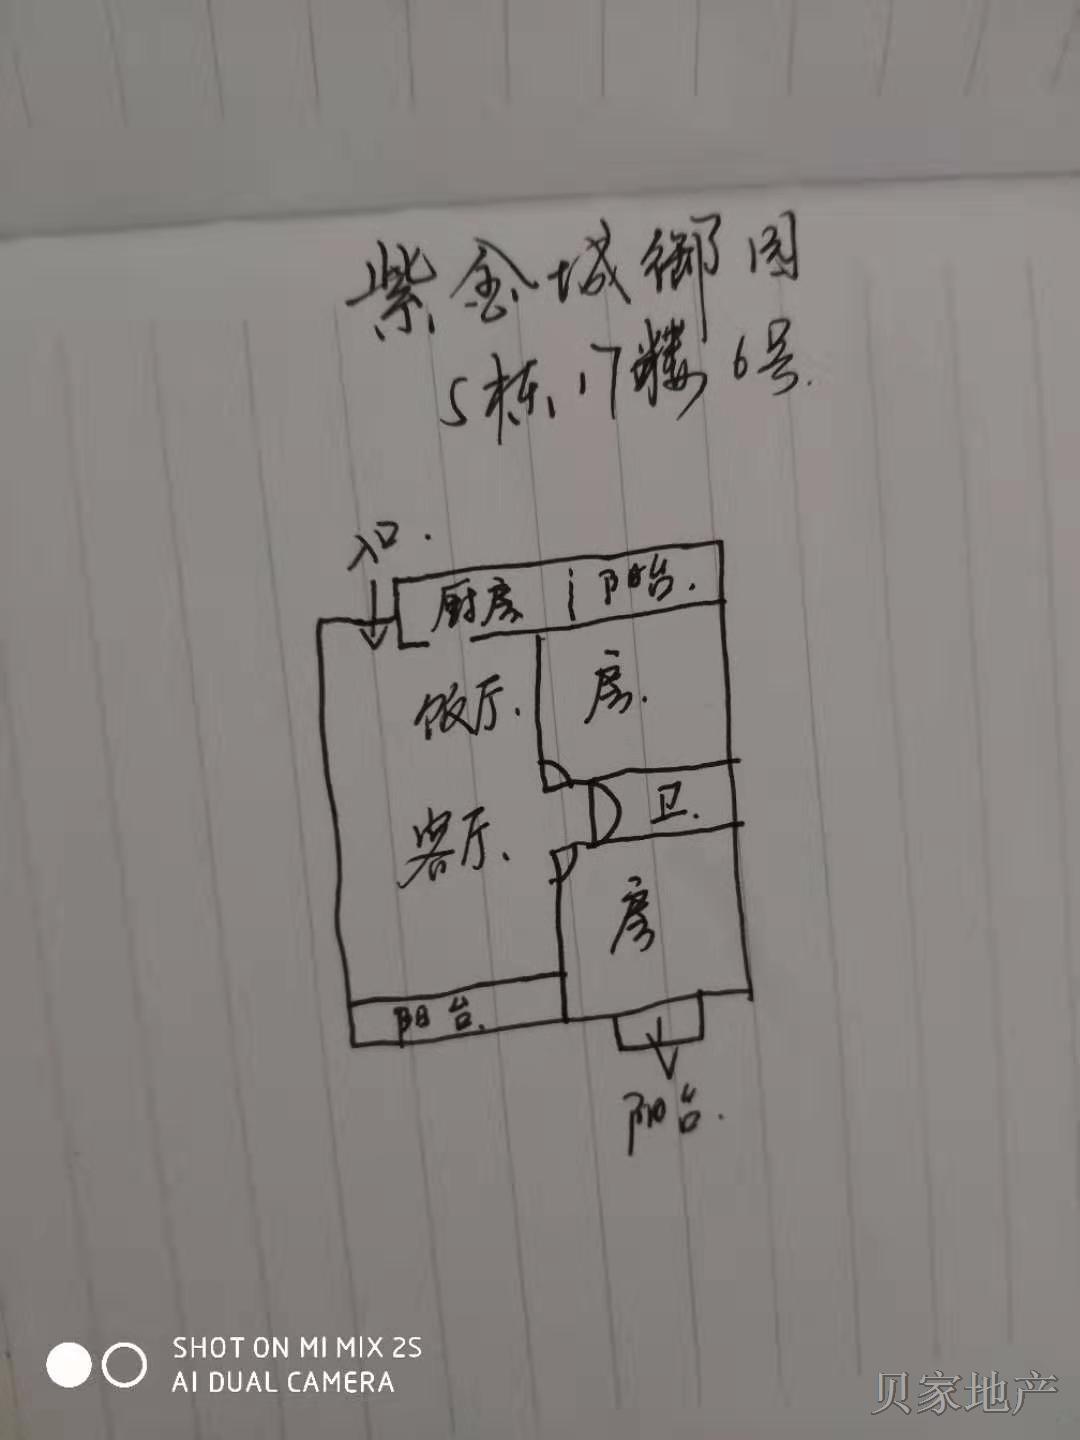 紫金城御园
5栋17楼6号
入口
厨房 阳台
饭厅 房
卫
客厅
房
阳台
阳台
SHOT ON MI MIX 2S
AI DUAL CAMERA
贝家地产